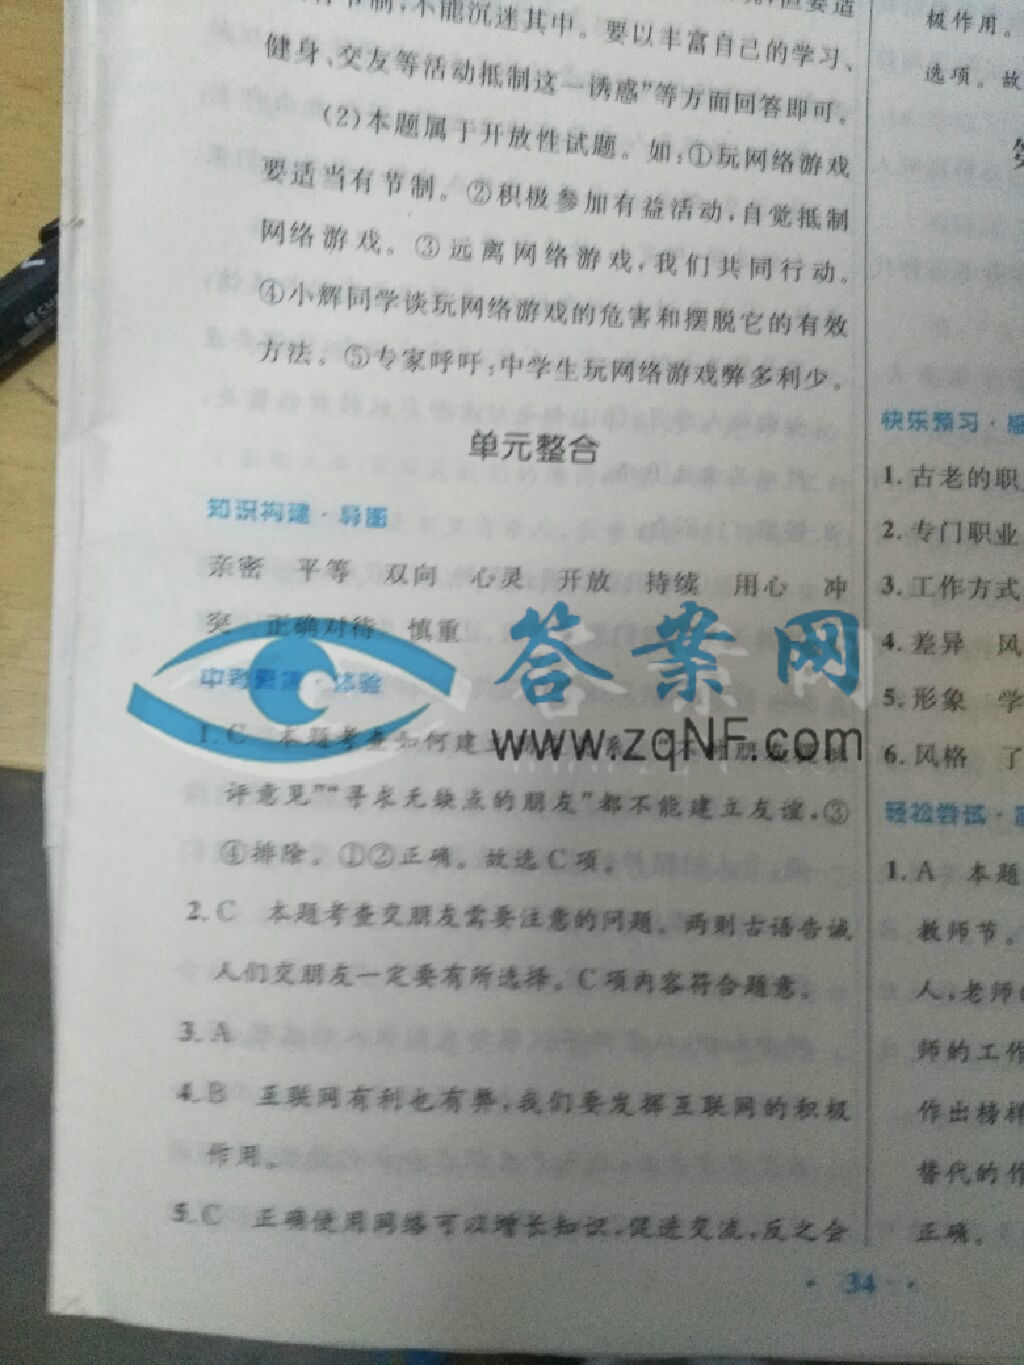 节制,不能沉迷其中。要以丰富自己的学习、
健身、交友等活动抵制这一诱惑”等方面回答即可。
(2)本题属于开放性试题。如:①玩网络游戏
要适当有节制。②积极参加有益活动,自觉抵制
网络游戏。③远离网络游戏,我们共同行动。
④小辉同学谈玩网络游戏的危害和摆脱它的有效
方法。⑤专家呼吁,中学生玩网络游戏弊多利少。
单元整合
知识构建·导图
亲密 平等 双向 心灵 开放 持续 用心 冲
突 正确对待 慎重
中考 体验
1.C 本题考查如何建立
评意见”“寻求无缺点的朋友”都不能建立友谊,③
④排除。①②正确。故选C项。
2.C 本题考查交朋友需要注意的问题。两则古语告诫
人们交朋友一定要有所选择。C项内容符合题意。
3.A
4.B 互联网有利也有弊,我们要发挥互联网的积极
作用。
5.C 正确使用网络可以增长知识,促进交流,反之会
答案网
www.zqNF.com
极作用。
选项。故
快乐预习·
1.古老的职
2.专门职业
3.工作方式
4.差异 风
5.形象 学
6.风格 了
轻松尝试·
1.A 本题
教师节。
人,老师
师的工作
作出榜样
替代的作
正确。
·34·